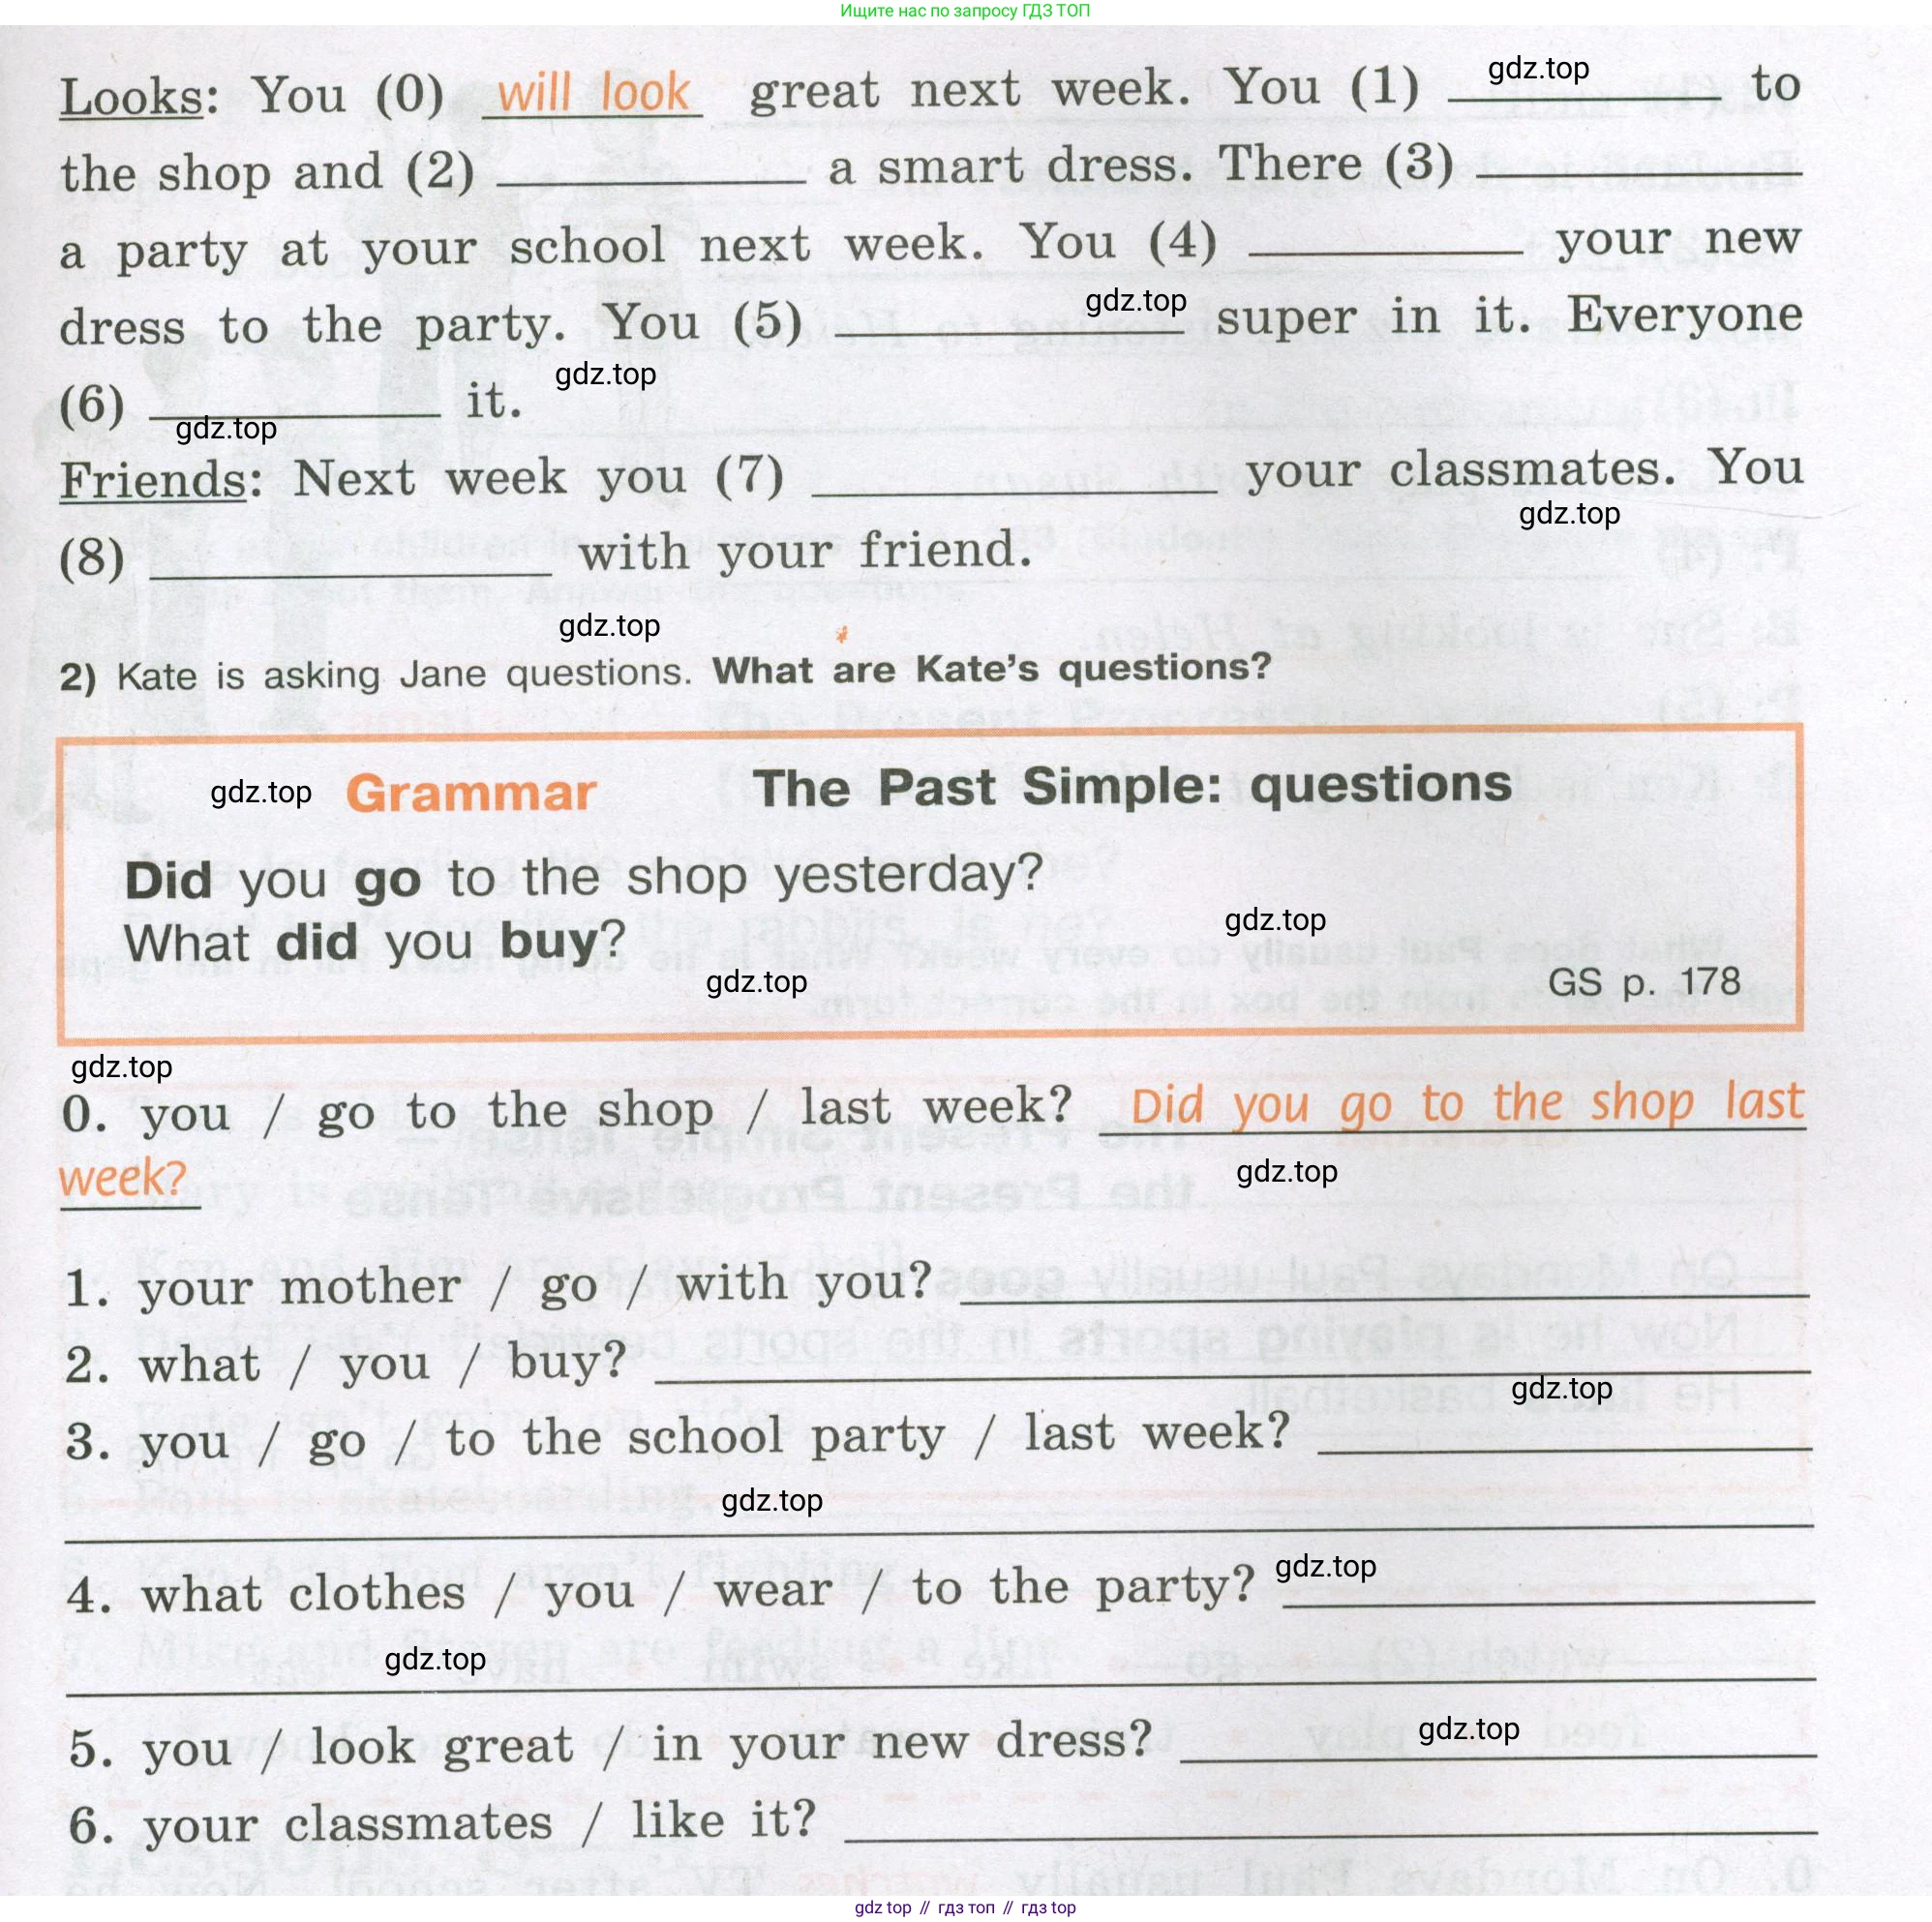 Ищите нас по запросу ГДЗ ТОП
Looks: You (0) will look great next week. You (1) ____ to
gdz.top
the shop and (2) ____ a smart dress. There (3) ____
a party at your school next week. You (4) ____ your new
gdz.top
dress to the party. You (5) ____ super in it. Everyone
gdz.top
(6) ____ it.
gdz.top
Friends: Next week you (7) ____ your classmates. You
gdz.top
(8) ____ with your friend.
gdz.top
2) Kate is asking Jane questions. What are Kate's questions?
gdz.top Grammar The Past Simple: questions
Did you go to the shop yesterday?
gdz.top
What did you buy?
gdz.top
GS p. 178
gdz.top
0. you / go to the shop / last week? Did you go to the shop last
gdz.top
week?
1. your mother / go / with you? ____
2. what / you / buy? ____
gdz.top
3. you / go / to the school party / last week? ____
gdz.top
4. what clothes / you / wear / to the party? ____
gdz.top
gdz.top
5. you / look great / in your new dress? ____
gdz.top
6. your classmates / like it? ____
gdz top // гдз топ // гдз top